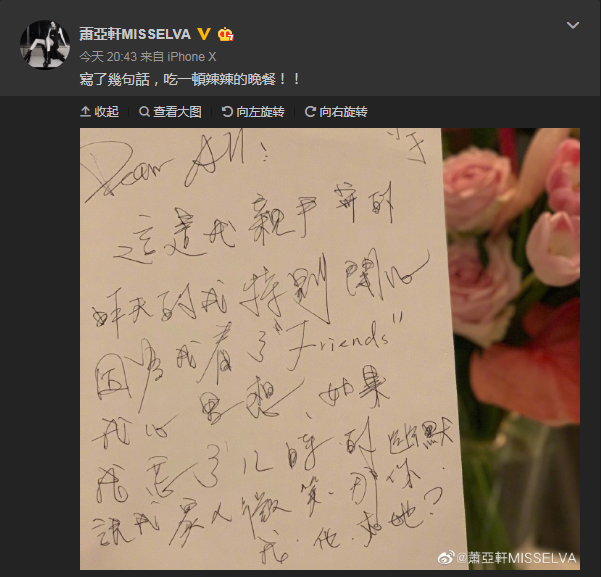 蕭亞軒MISSELVA
今天 20:43 来自 iPhone X
寫了幾句話，吃一頓辣辣的晚餐！！
收起 查看大图 向左旋转 向右旋转
Dear All:
這是我親手寫的
昨天的我特別開心
因為我看了"Friends"
我心里想、如果
我忘了儿時的幽默
說我 人微笑
我.他.和她?
@蕭亞軒MISSELVA